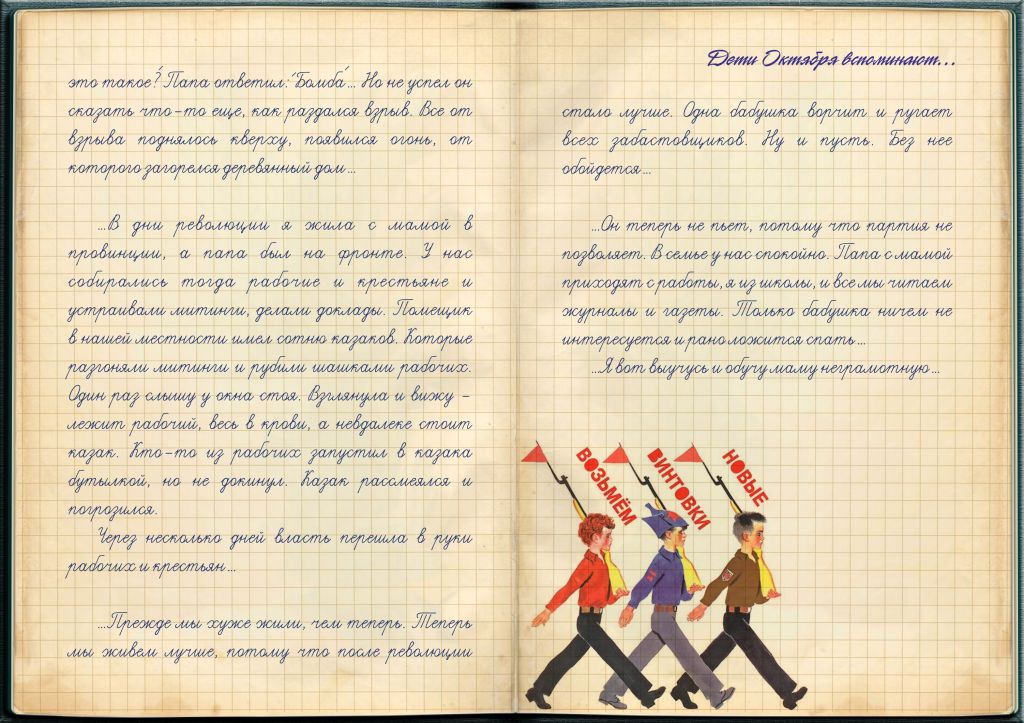 это такое? Папа ответил: "Бомба"... Но не успел он
сказать что-то еще, как раздался взрыв. Все от
взрыва поднялось кверху, появился огонь, от
которого загорелся деревянный дом...
...В дни революции я жила с мамой в
провинции, а папа был на фронте. У нас
собирались тогда рабочие и крестьяне и
устраивали митинги, делали доклады. Помещик
в нашей местности имел сотню казаков. Которые
разгоняли митинги и рубили шашками рабочих.
Один раз слышу у окна стоя. Взглянула и вижу -
лежит рабочий, весь в крови, а невдалеке стоит
казак. Кто-то из рабочих запустил в казака
бутылкой, но не докинул. Казак рассмеялся и
погрозился.
Через несколько дней власть перешла в руки
рабочих и крестьян...
...Прежде мы хуже жили, чем теперь. Теперь
мы живем лучше, потому что после революции
Дети Октября вспоминают...
стало лучше. Одна бабушка ворчит и ругает
всех забастовщиков. Ну и пусть. Без нее
обойдется...
...Он теперь не пьет, потому что партия не
позволяет. В семье у нас спокойно. Папа с мамой
приходят с работы, я из школы, и все мы читаем
журналы и газеты. Только бабушка ничем не
интересуется и рано ложится спать...
...Я вот выучусь и обучу маму неграмотную...
ВОЗЬМЁМ
ВИНТОВКИ
НОВЫЕ